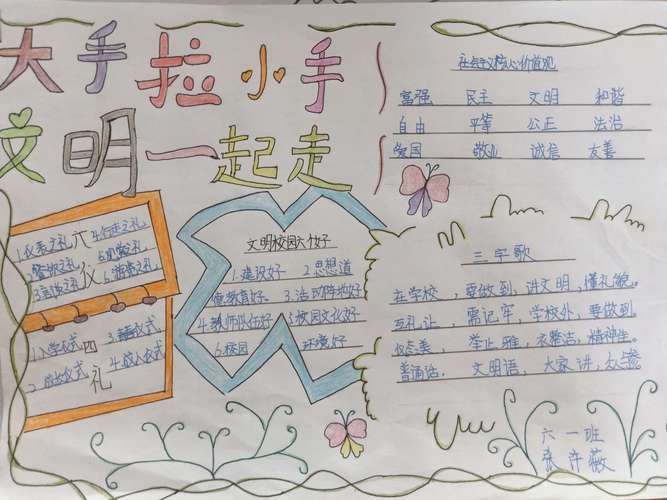 大手拉小手
文明一起走
社会主义核心价值观
富强 民主 文明 和谐
自由 平等 公正 法治
爱国 敬业 诚信 友善
六仪
1.仪表之礼 4.行走之礼
5.观赏之礼
3.言谈之礼 6.游览之礼
四礼
1.入学仪式
2.成长仪式 4.成人仪式
文明校园六个好
1.建设好 2.思想道
德教育好 3.活动阵地好
4.教师队伍好 5.校园文化好
6.校园 环境好
三字歌
在学校,要做到,讲文明,懂礼貌。
互礼让,需记牢,学校外,要做到
仪态美,举止雅,衣整洁,精神生。
普通话,文明语,大家讲,
六一班
张许薇